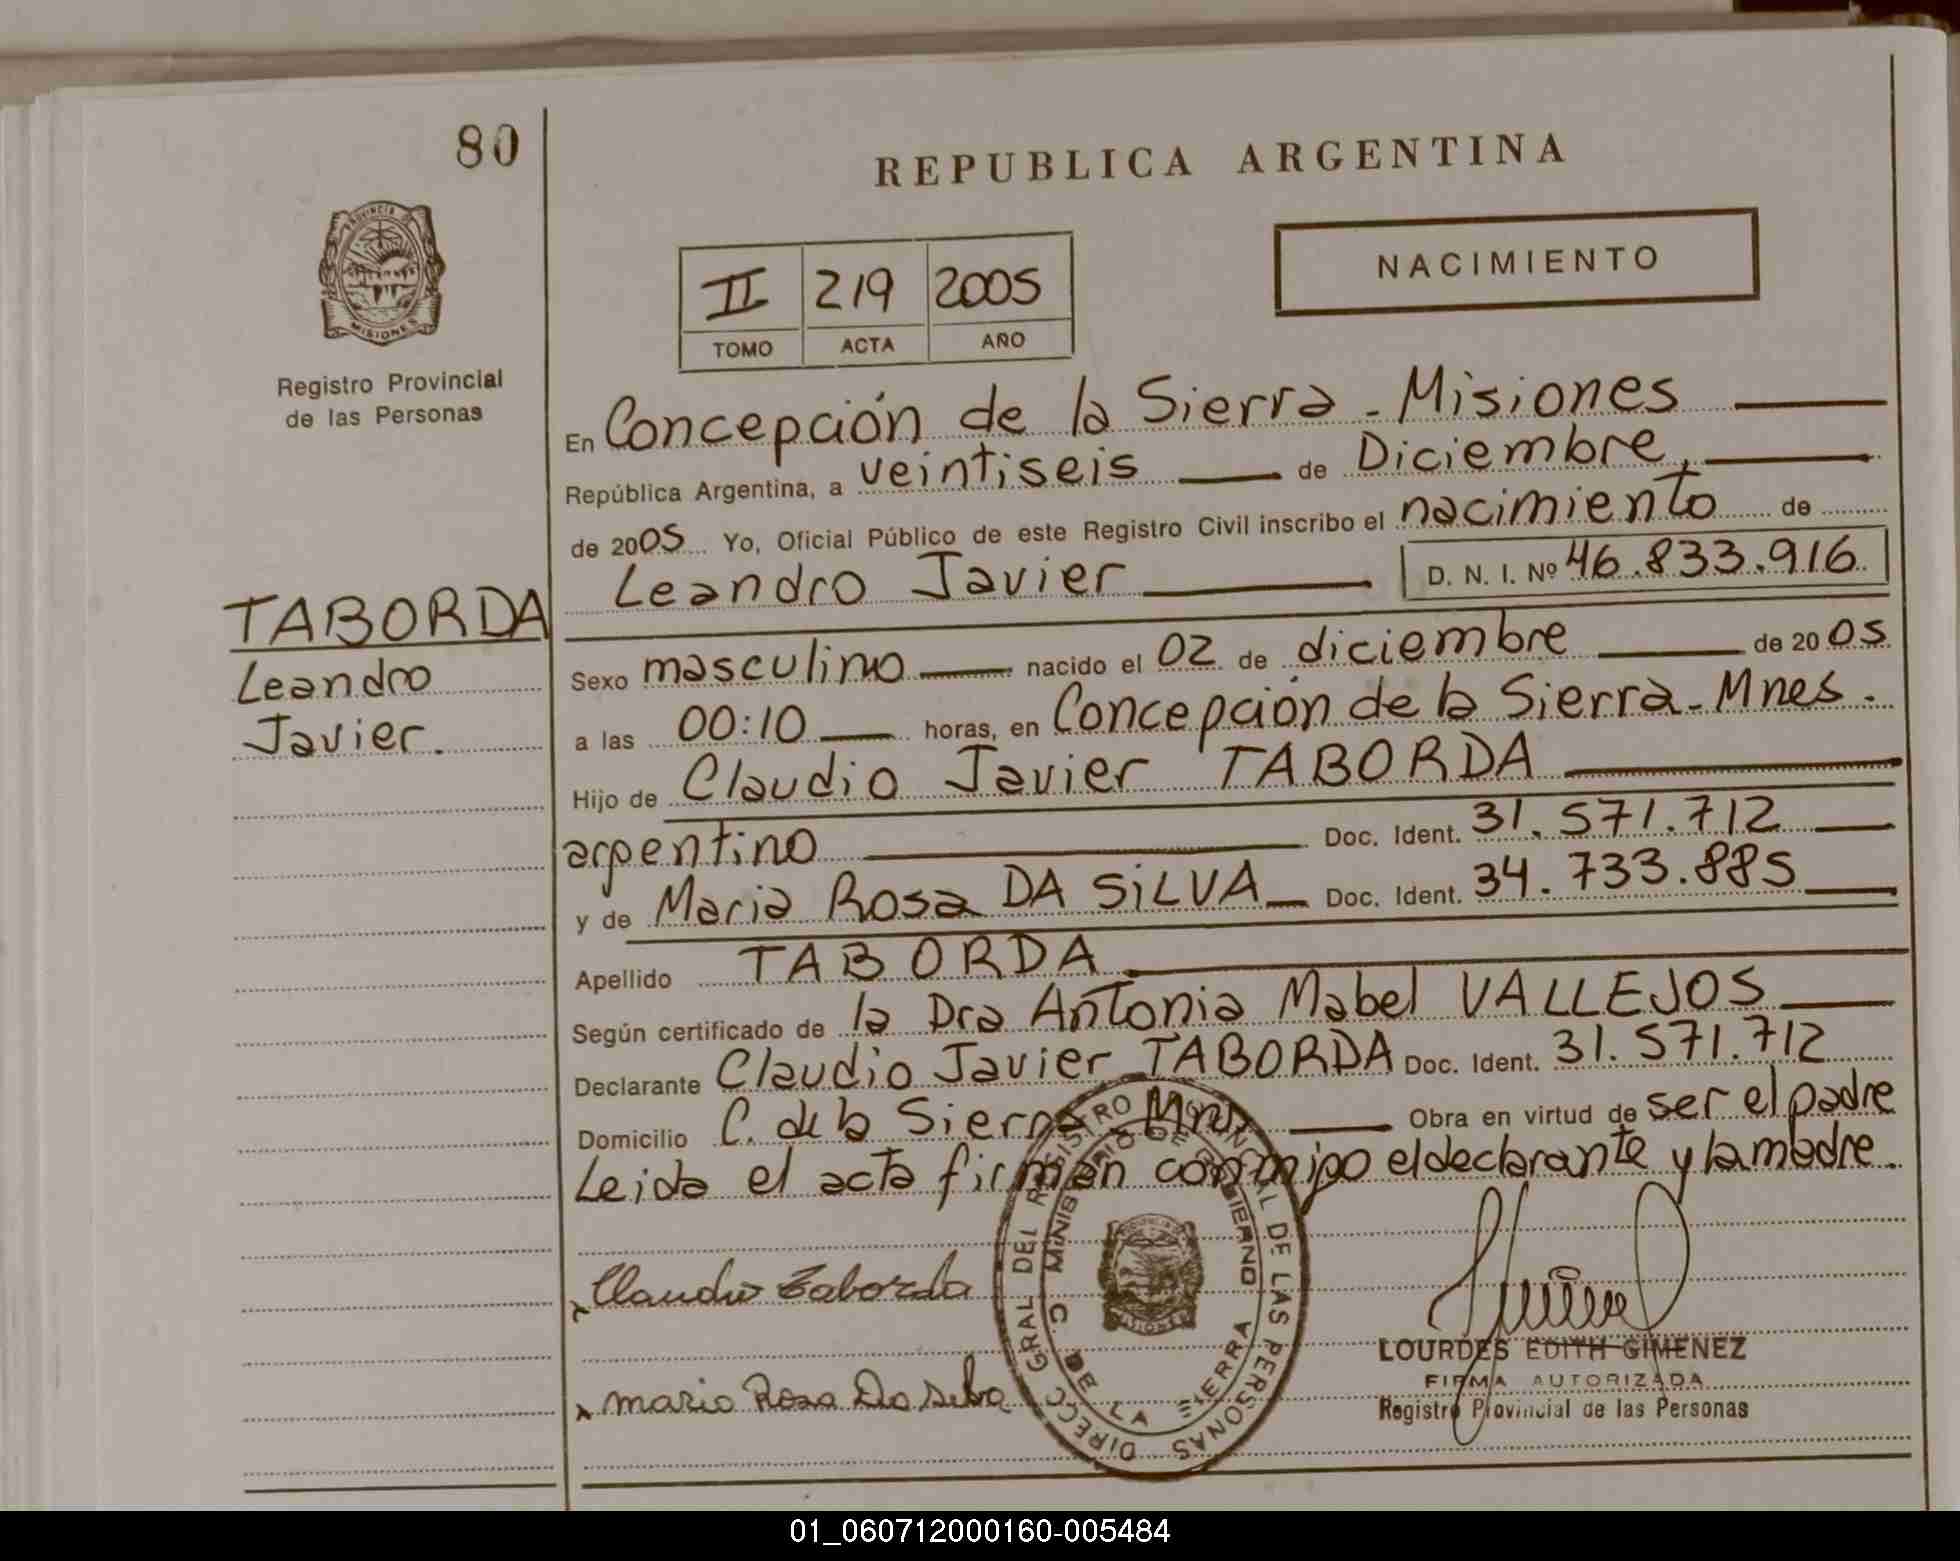 80
REPUBLICA ARGENTINA
NACIMIENTO
II 219 2005
TOMO ACTA AÑO
PROVINCIA DE
MISIONES
Registro Provincial
de las Personas
En Concepción de la Sierra - Misiones
República Argentina, a veintiseis de Diciembre,
de 2005 Yo, Oficial Público de este Registro Civil inscribo el nacimiento de
Leandro Javier D. N. I. Nº 46.833.916
TABORDA
Leandro
Javier.
Sexo masculino nacido el 02 de diciembre de 2005
a las 00:10 horas, en Concepción de la Sierra - Mnes.
Hijo de Claudio Javier TABORDA
argentino Doc. Ident. 31.571.712
y de Maria Rosa DA SiLVA Doc. Ident. 34.733.885
Apellido TABORDA
Según certificado de la Dra Antonia Mabel VALLEJOS
Declarante Claudio Javier TABORDA Doc. Ident. 31.571.712
Domicilio C. de la Sierra - Mnes Obra en virtud de ser el padre
Leida el acta firman conmigo el declarante y la madre.
Claudio Taborda
Maria Rosa Da Silva
DIRECC. GRAL DEL REGISTRO PROVINCIAL DE LAS PERSONAS
MINISTERIO DE GOBIERNO
C. DE LA SIERRA
MISIONES
LOURDES EDITH GIMENEZ
FIRMA AUTORIZADA
Registro Provincial de las Personas
01_060712000160-005484